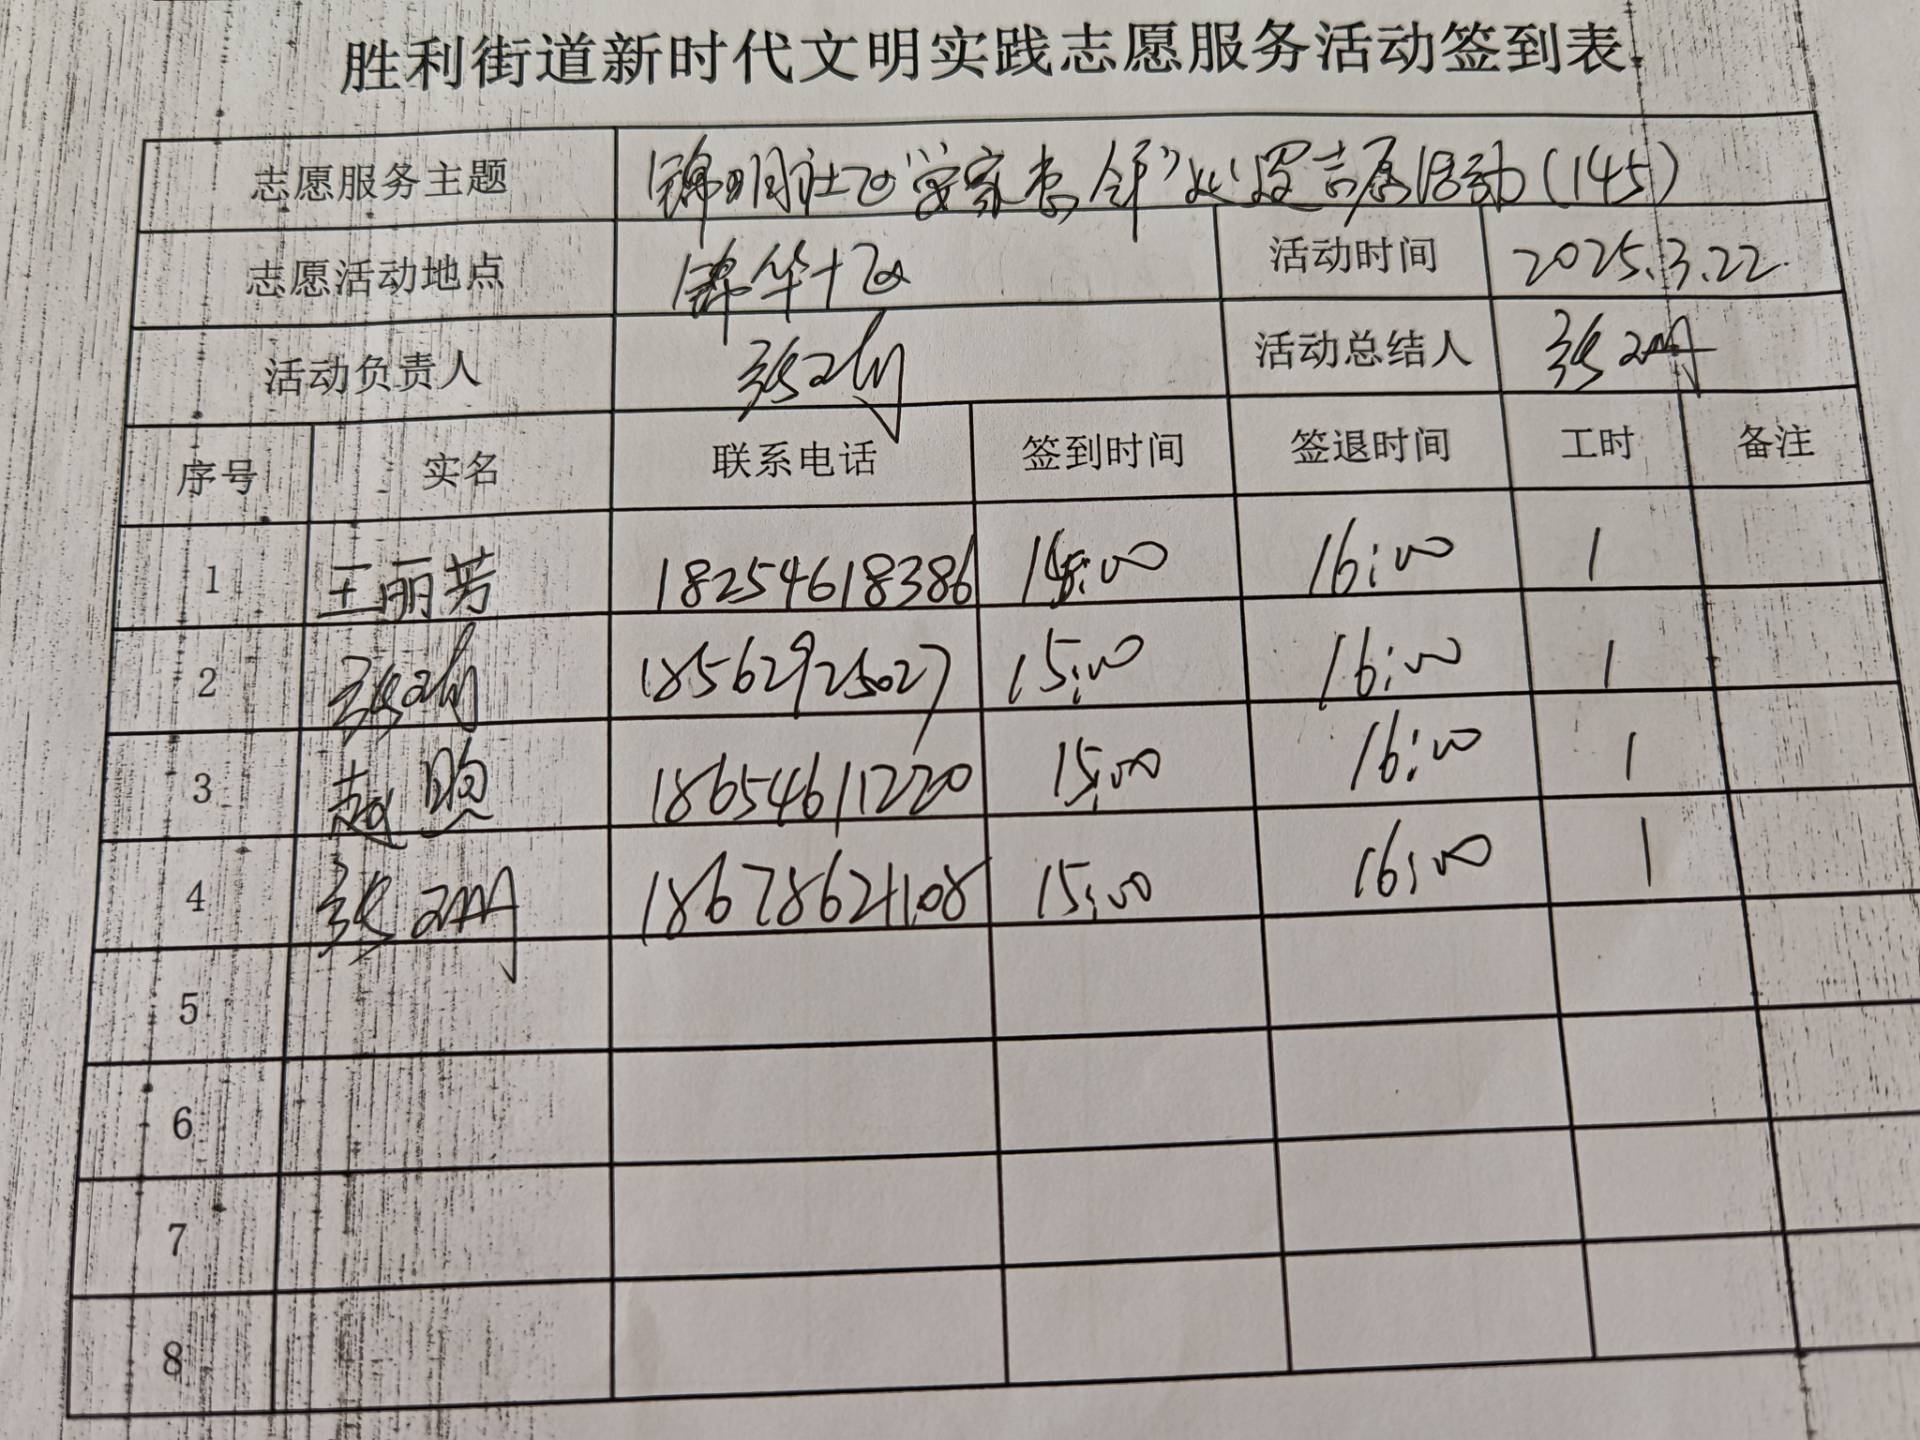 胜利街道新时代文明实践志愿服务活动签到表
志愿服务主题 锦明社区"学家 令年" 志愿活动(145)
志愿活动地点 锦华十区 活动时间 2025.3.22.
活动负责人 张 活动总结人 张
序号 实名 联系电话 签到时间 签退时间 工时 备注
1 王丽芳 18254618386 15:00 16:00 1
2 张 18562925027 15:00 16:00 1
3 赵煦 18654611220 15:00 16:00 1
4 张 15:00 16:00 1
5
6
7
8